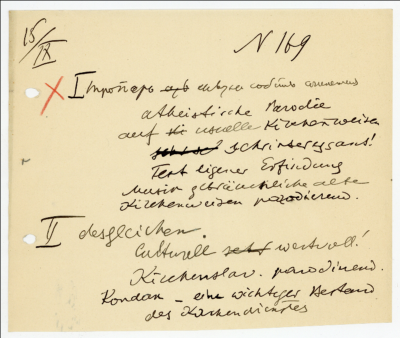 15/IX
N 169
I Тропарь
atheistische Parodie
auf usuelle Kirchenweisen
Text eigener Erfindung
Musik gebräuchliche alte
Kirchenweisen parodierend.
II desgleichen.
Culturell wertvoll!
Kirchenslav. parodierend.
Kondak – eine wichtiger Bestand
des Kirchendienstes